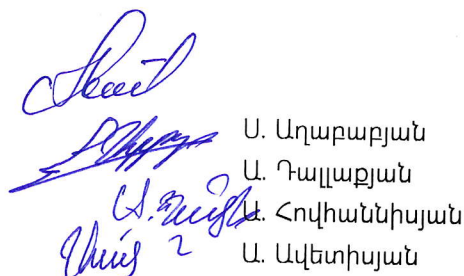 Ս. Աղաբաբյան
Ա. Դալլաքյան
Ա. Հովհաննիսյան
Ա. Ավետիսյան